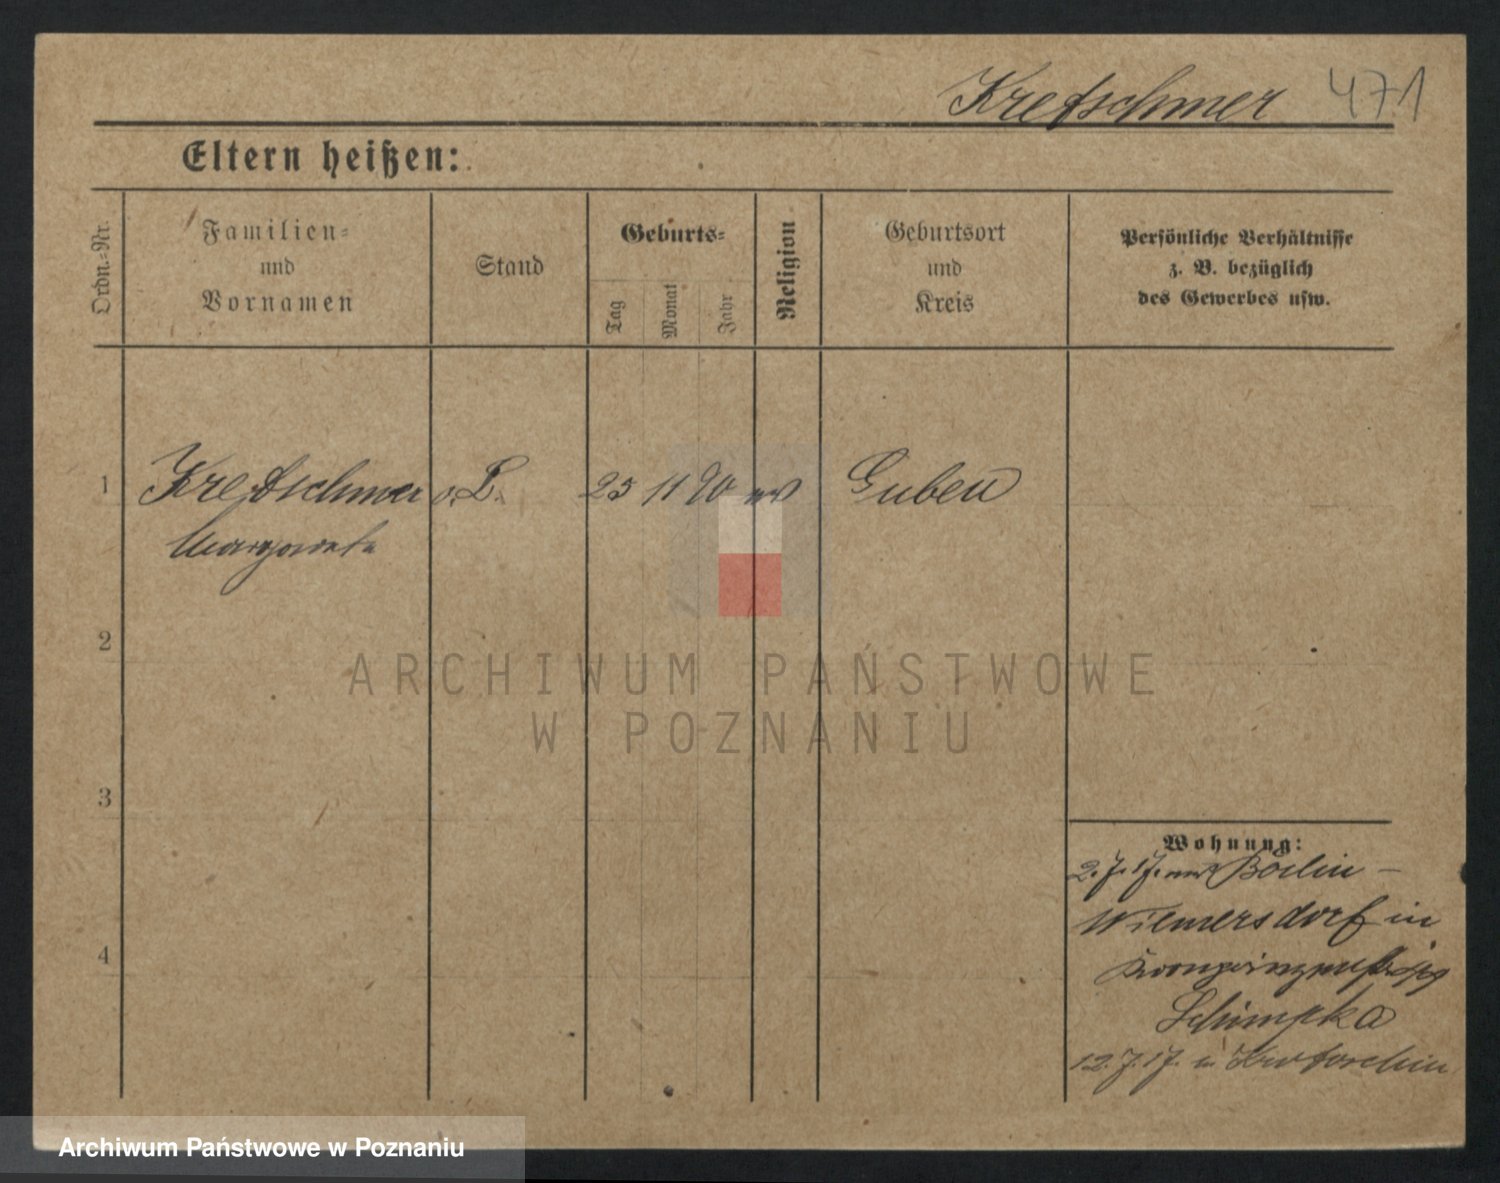 Kretschmer 471
Eltern heißen:
Ordn.-Nr.
Familien-
und
Vornamen
Stand
Geburts-
Tag
Monat
Jahr
Religion
Geburtsort
und
Kreis
Persönliche Verhältnisse
z. B. bezüglich
des Gewerbes usw.
1 Kretschmer o. L. 25 11 90 ev Guben
Margarete
2
3
4
Wohnung:
2.7.17. Berlin-
Wilmersdorf in
Schimpka
12.7.17. n. Krotoschin
ARCHIWUM PAŃSTWOWE
W POZNANIU
Archiwum Państwowe w Poznaniu